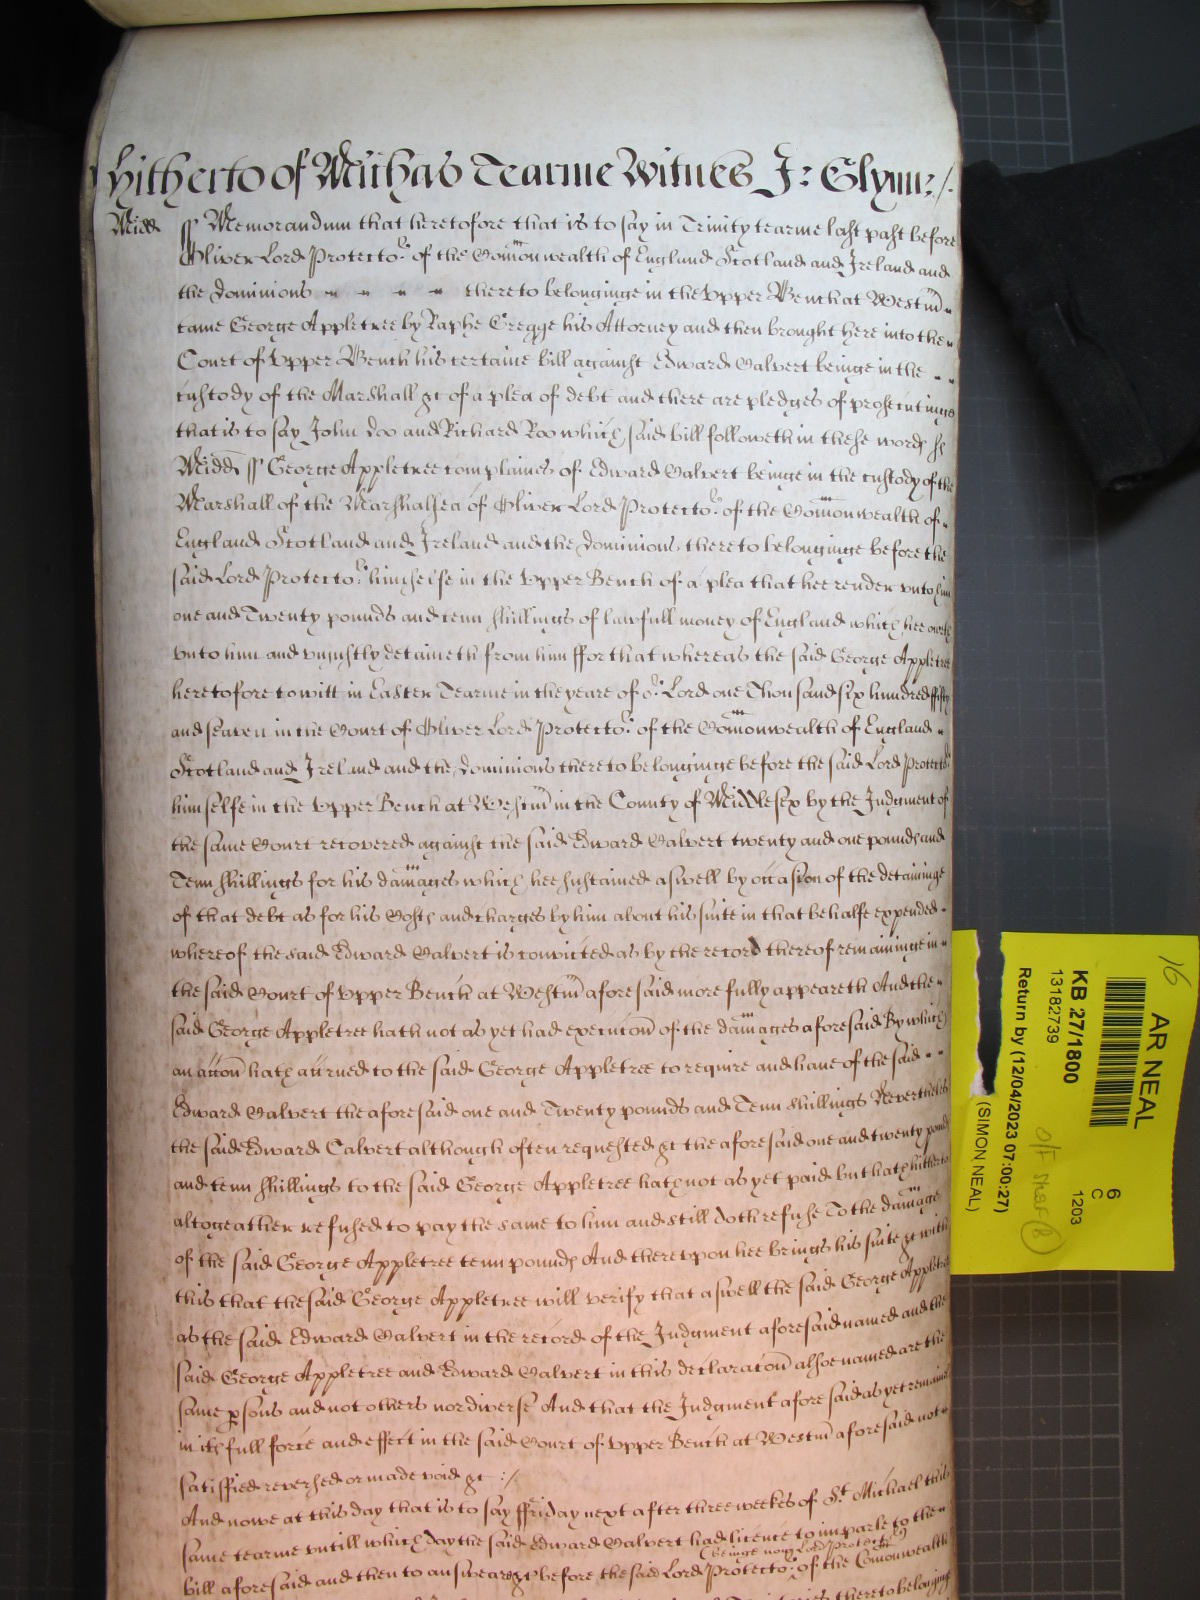 hitherto of Michas Tearme Witnes J: Glynn:/.
Midd
ss Memorandum that heretofore that is to say in Trinity tearme last past before
Oliver Lord Protector of the Comonwealth of England Scotland and Ireland and
the dominions thereto belonginge in the Upper Bench at Westm
came George Appletree by Raphe Gregge his Attorney and then brought here into the
Court of Upper Bench his certaine bill against Edward Calvert beinge in the
custody of the Marshall &c of a plea of debt and there are pledges of prosecutinge
that is to say John Doo and Richard Roo which said bill followeth in these words ss
Midd ss George Appletree complaines of Edward Calvert beinge in the custody of the
Marshall of the Marshalsea of Oliver Lord Protector of the Comonwealth of
England Scotland and Ireland and the dominions thereto belonginge before the
said Lord Protector himselfe in the Upper Bench of a plea that hee render unto him
one and Twenty pounds and tenn shillings of lawfull money of England which hee oweth
unto him and uniustly detaineth from him ffor that whereas the said George Appletree
heretofore to witt in Easter Tearme in the yeare of or Lord one Thousand six hundred fifty
and seaven in the Court of Oliver Lord Protector of the Comonwealth of England
Scotland and Ireland and the dominions thereto belonginge before the said Lord Protector
himselfe in the Upper Bench at Westm in the County of Middlesex by the Judgment of
the same Court recovered against the said Edward Calvert twenty and one pounds and
Tenn shillings for his damages which hee sustained aswell by occasion of the detaininge
of that debt as for his Costs and charges by him about his suite in that behalfe expended
whereof the said Edward Calvert is convicted as by the record thereof remaininge in
the said Court of Upper Bench at Westm aforesaid more fully appeareth And the
said George Appletree hath not as yet had execucon of the damages aforesaid By which
an accon hath accrued to the said George Appletree to require and have of the said
Edward Calvert the aforesaid one and Twenty pounds and Tenn shillings Neverthelesse
the said Edward Calvert although often requested &c the aforesaid one and twenty pounds
and tenn shillings to the said George Appletree hath not as yet paid but hath hitherto
altogeather refused to pay the same to him and still doth refuse To the damage
of the said George Appletree tenn pounds And thereupon hee brings his suite &c with
this that the said George Appletree will verify that aswell the said George Appletree
as the said Edward Calvert in the record of the Judgment aforesaid named and the
said George Appletree and Edward Calvert in this declaracon alsoe named are the
same psons and not others nor diverse And that the Judgment aforesaid as yet remaines
in its full force and effect in the said Court of Upper Bench at Westm aforesaid not
satisfied reversed or made void &c :/
And nowe at this day that is to say ffriday next after three weekes of St Michael this
same tearme untill which day the said Edward Calvert had licence to imparle to the
(beinge now Lord Protector)
bill aforesaid and then to answeare &c before the said Lord Protector of the Comonwealth
thereto belonginge
16
AR NEAL
KB 27/1800
13182739
Return by (12/04/2023 07:00:27)
(SIMON NEAL)
6
C
1203